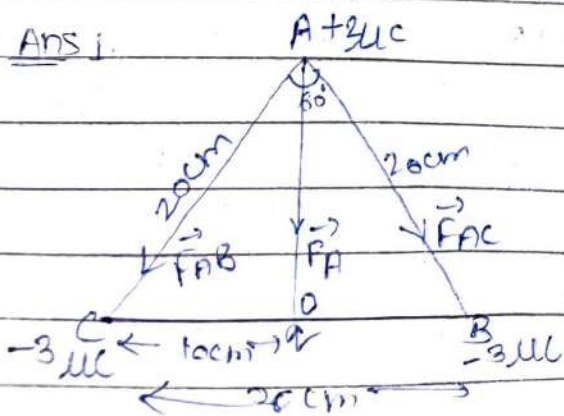 Ans 1.
A +3μC
60°
20cm
20cm
→FAB
→FA
→FAC
O
C
B
-3μC
← 10cm → q
-3μC
← 20cm →